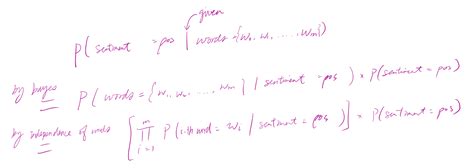 given
P( sentiment = pos | words = {w₀, w₁, ...., wₘ})
by bayes P( words = {w₁, w₂, ..., wₘ} | sentiment = pos ) * P(sentiment = pos)
by independence of words [ ∏ᵢ₌₁ᵐ P( i-th word = wᵢ | sentiment = pos ) ] * P(sentiment = pos)